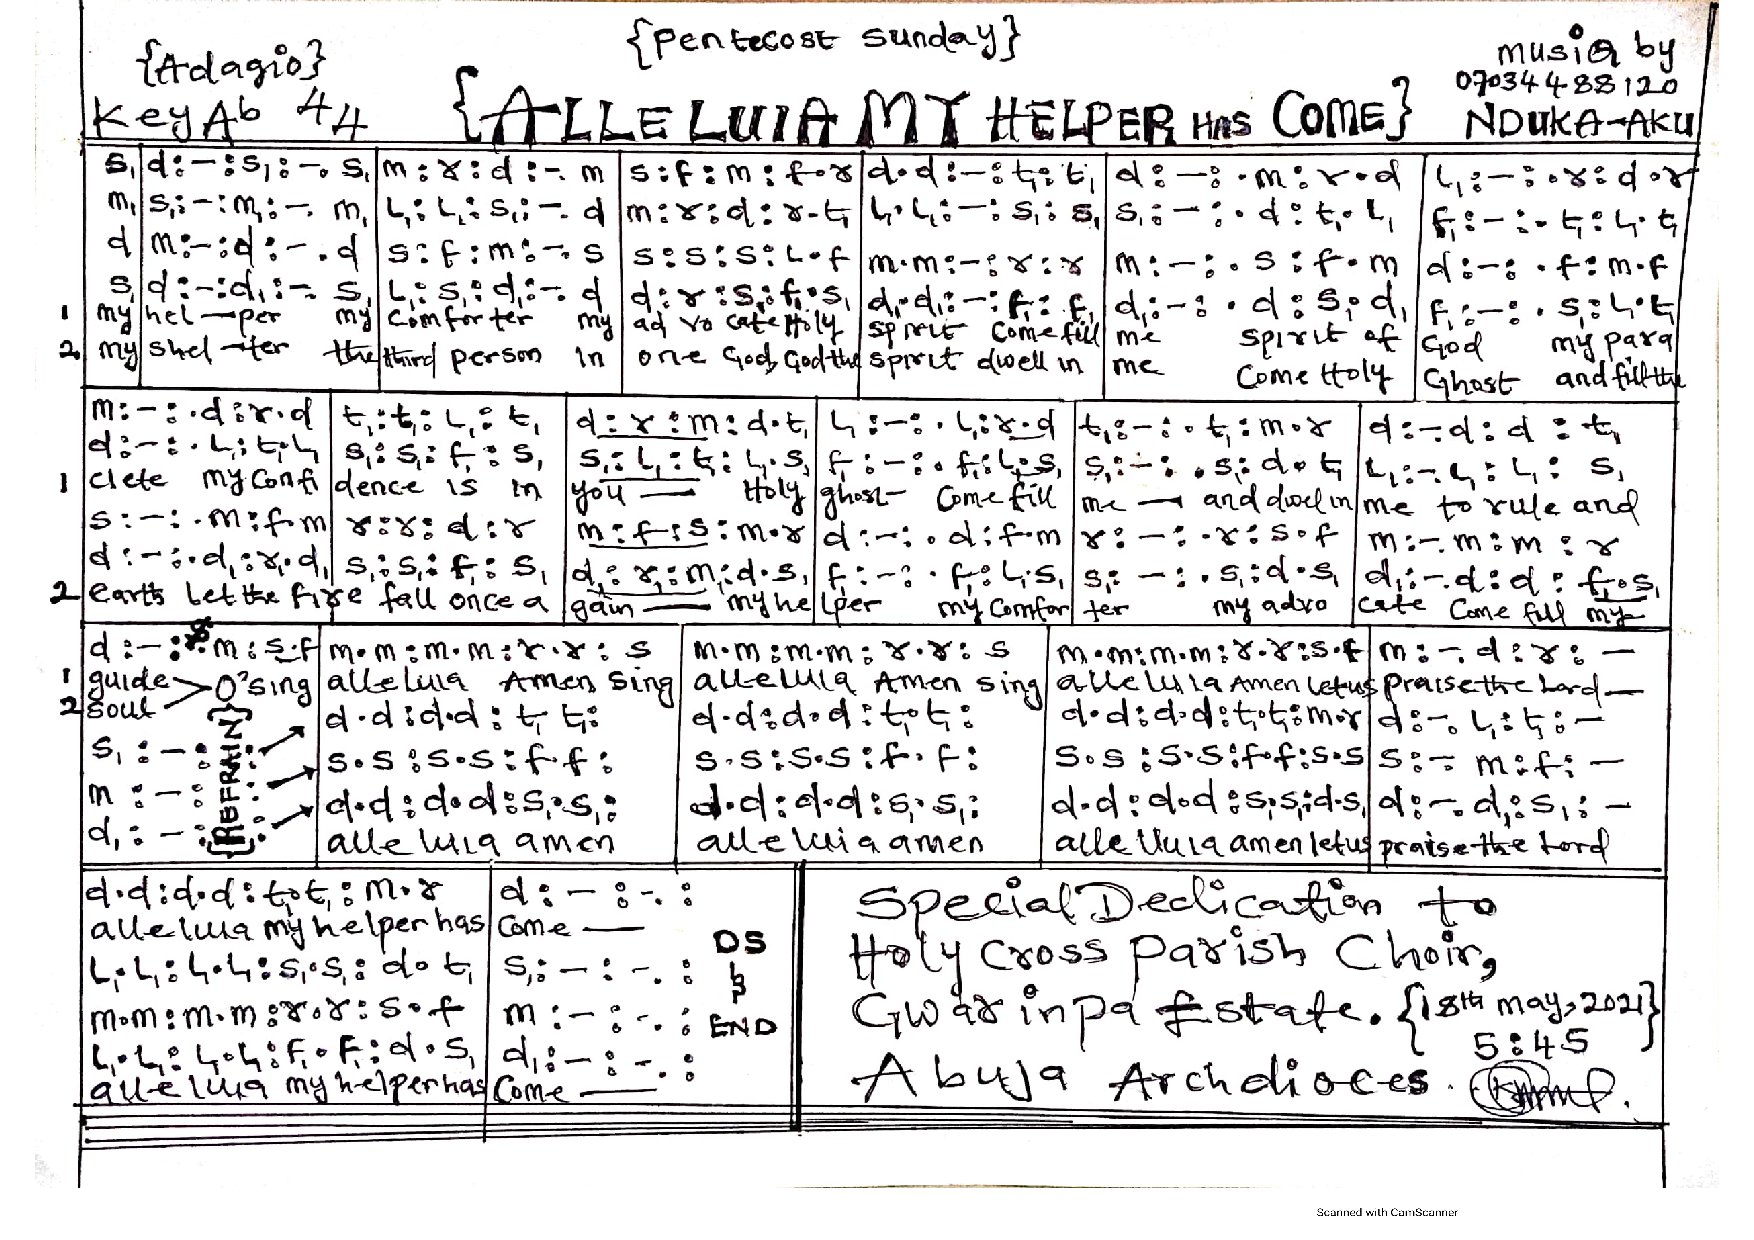 {Pentecost Sunday}
{Adagio}
music by
07034488120
Key Ab 44
{ALLELUIA MY HELPER HAS COME}
NDUKA-AKU
s, d:-:s,:-. s, m:r:d:-. m s:f:m:f.r d.d:-:t,:t, d:-:.m:r.d l,:-:.r:d.r
m, s,:-:m,:-. m, l,:l,:s,:-. d m:r:d:r.t, l,.l,:-:s,:s, s,:-:.d:t,.l, f,:-:.t,:l,.t,
d m:-:d:-.d s:f:m:-. s s:s:s:l.f m.m:-:r:r m:-:.s:f.m d:-:.f:m.f
s, d:-:d,:-. s, l,:s,:d,:-. d d:r:s,:f,.s, d,.d,:-:f,:f, d,:-:.d:s,.d, f,:-:.s,:l,.t,
1 my hel-per my comforter my advocate Holy spirit come fill me spirit of God my para
2. my shel-ter the third person in one God, God the spirit dwell in me Come Holy Ghost and fill the
m:-:.d:r.d t,:t,:l,:t, d:r:m:d.t, l,:-:.l,:r.d t,:-:.t,:m.r d:-.d:d:t,
d:-:.l,:t,.l, s,:s,:f,:s, s,:l,:t,:l,.s, f,:-:.f,:l,.s, s,:-:.s,:d.t, l,:-.l,:l,: s,
1 clete my confidence is in you — Holy ghost- Come fill me — and dwell in me to rule and
s:-:.m:f.m r:r:d:r m:f:s:m.r d:-:.d:f.m r:-:.r:s.f m:-.m:m:r
d:-:.d,:r,.d, s,:s,:f,:s, d,:r,:m,:d.s, f,:-:.f,:l,.s, s,:-:.s,:d.s, d,:-.d:d:f,.s,
2 earth let the fire fall once a gain — my helper my comforter my advocate come fill my
d:-:.m:s.f m.m:m.m:r.r:s m.m:m.m:r.r:s m.m:m.m:r.r:s.f m:-.d:r:-
1 guide > O'sing alleluia Amen sing alleluia Amen sing alleluia Amen let us praise the Lord—
2 soul
d.d:d.d:t, t,: d.d:d.d:t,.t,: d.d:d.d:t,.t,:m.r d:-.l,:t,:-
s,:-: s.s:s.s:f.f: s.s:s.s:f.f: s.s:s.s:f.f:s.s s:-.m:f:-
m:-:
{REFRAIN}
d,:-: d.d:d.d:s,.s,: d.d:d.d:s,.s,: d.d:d.d:s,.s,:d.s, d:-.d,:s,:-
alleluia amen alleluia amen alleluia amen let us praise the Lord
d.d:d.d:t,.t,:m.r d:-:-.:
alleluia my helper has Come —
l,.l,:l,.l,:s,.s,:d.t, s,:-:-.:
m.m:m.m:r.r:s.f m:-:-.:
l,.l,:l,.l,:f,.f,:d.s, d,:-:-.:
alleluia my helper has Come —
DS
END
Special Dedication to
Holy Cross Parish Choir,
Gwarinpa Estate. {18th may, 2021}
5:45
Abuja Archdioces.
Scanned with CamScanner